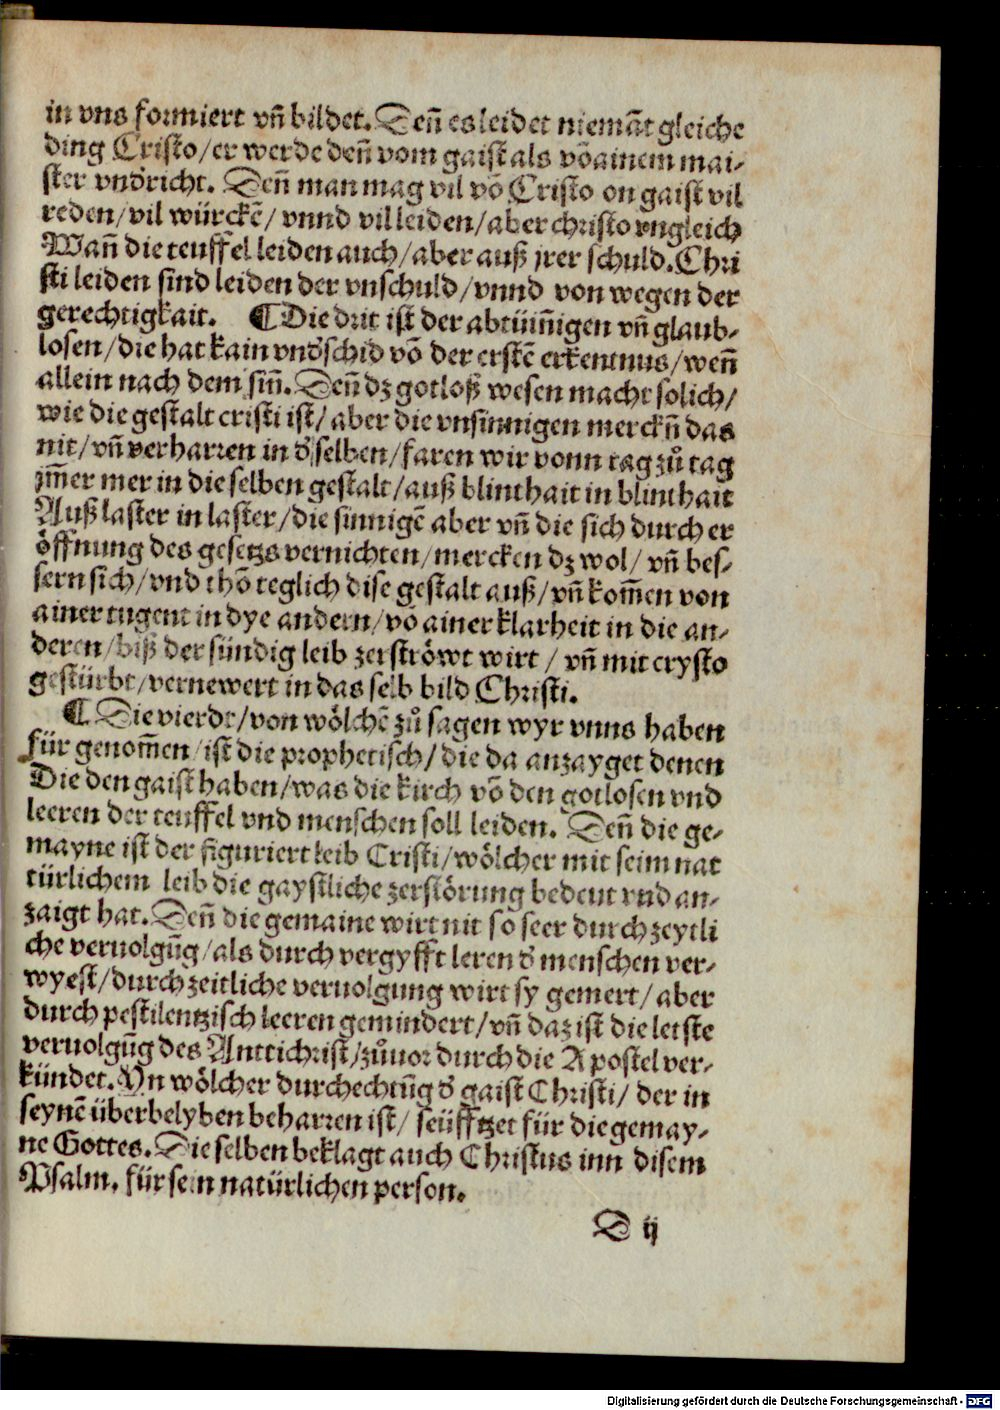 in vns formiert vñ bildet. Deñ es leidet niemãt gleiche
ding Cristo/er werde deñ vom gaist als võ ainem mai-
ster vnd̕richt. Deñ man mag vil võ Cristo on gaist vil
reden/vil würckẽ/vnnd vil leiden/aber christo vngleich
Wañ die teuffel leiden auch/aber auß jrer schuld. Chri
sti leiden sind leiden der vnschuld/vnnd von wegen der
gerechtigkait. ¶ Die drit ist der abtüñigen vñ glaub-
losen/die hat kain vnd̕schid võ der erstẽ erkentnus/weñ
allein nach dem siñ. Deñ dz gotloß wesen macht solich/
wie die gestalt cristi ist/aber die vnsinnigen merckñ das
nit/vñ verharren in d̕ selben/faren wir vonn tag zů tag
jm̃er mer in die selben gestalt/auß blinthait in blinthait
Auß laster in laster/die sinnigẽ aber vñ die sich durch er
öffnung des gesetzs vernichten/mercken dz wol/vñ bes-
sern sich/vnd thõ teglich dise gestalt auß/vñ kom̃en von
ainer tugent in dye andern/võ ainer klarheit in die an-
deren/biß der sündig leib zerströwt wirt/vñ mit crysto
gestürbt/vernewert in das selb bild Christi.
¶ Die vierdt/von wölchẽ zů sagen wyr vnns haben
für genom̃en/ist die prophetisch/die da anzayget denen
Die den gaist haben/was die kirch võ den gotlosen vnd
leeren der teuffel vnd menschen soll leiden. Deñ die ge-
mayne ist der figuriert leib Cristi/wölcher mit seim nat
türlichem leib die gaystliche zerstörung bedeut vnd an-
zaigt hat. Deñ die gemaine wirt nit so seer durch zeytli
che veruolgũg/als durch vergyfft leren d̕ menschen ver-
wyest/durch zeitliche veruolgung wirt sy gemert/aber
durch pestilentzisch leeren gemindert/vñ daz ist die letste
veruolgũg des Anttichrist/zůuor durch die Apostel ver-
kündet. Yn wölcher durchechtũg d̕ gaist Christi/der in
seynẽ überbelyben beharren ist/seüfftzet für die gemay-
ne Gottes. Die selben beklagt auch Christus inn disem
Psalm. für sein natürlichen person.
D ij
Digitalisierung gefördert durch die Deutsche Forschungsgemeinschaft - DFG